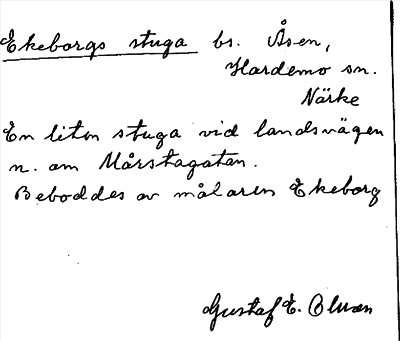 Ekeborgs stuga bs. Åsen,
Hardemo sn.
Närke
En liten stuga vid landsvägen
n. om Mårstagatan.
Beboddes av målaren Ekeborg
Gustaf E. Olwan